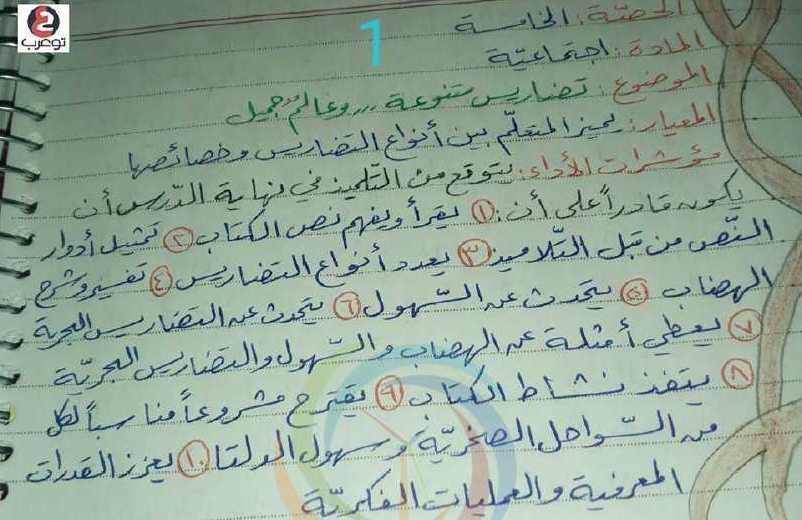 توعرب
1
الحصّة: الخامسة
المادة: اجتماعيّة
الموضوع: تضاريس متنوعة ,,, وعالمٌ جميل
المعيار: يميز المتعلّم بين أنواع التضاريس وخصائصها
مؤشرات الأداء: يتوقع من التلميذ في نهاية الدّرس أن
يكون قادراً على أن: ① يقرأ ويفهم نص الكتاب ② تمثيل أدوار
النّص من قبل التّلاميذ ③ يعدد أنواع التضاريس ④ تفسير وشرح
الهضاب ⑤ يتحدث عن السّهول ⑥ يتحدث عن التضاريس البحرية
⑦ يعطي أمثلة عن الهضاب والسّهول والتضاريس البحريّة
⑧ ينفذ نشاط الكتاب ⑨ يقترح مشروعاً مناسباً لكل
من السّواحل الصخريّة وسهول الدلتا ⑩ يعزز القدرات
المعرفية والعمليات الفكريّة